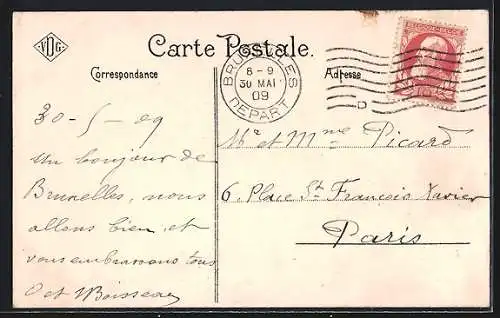 VDG
Carte Postale.
Correspondance
Adresse
BRUXELLES
8-9
30 MAI
09
DEPART
D
BELGIQUE·BELGIË
30-5-09
Un bonjour de
Bruxelles, nous
allons bien et
vous embrassons tous
et Boisseau
Mr et Mme Picard
6, Place St François Xavier
Paris